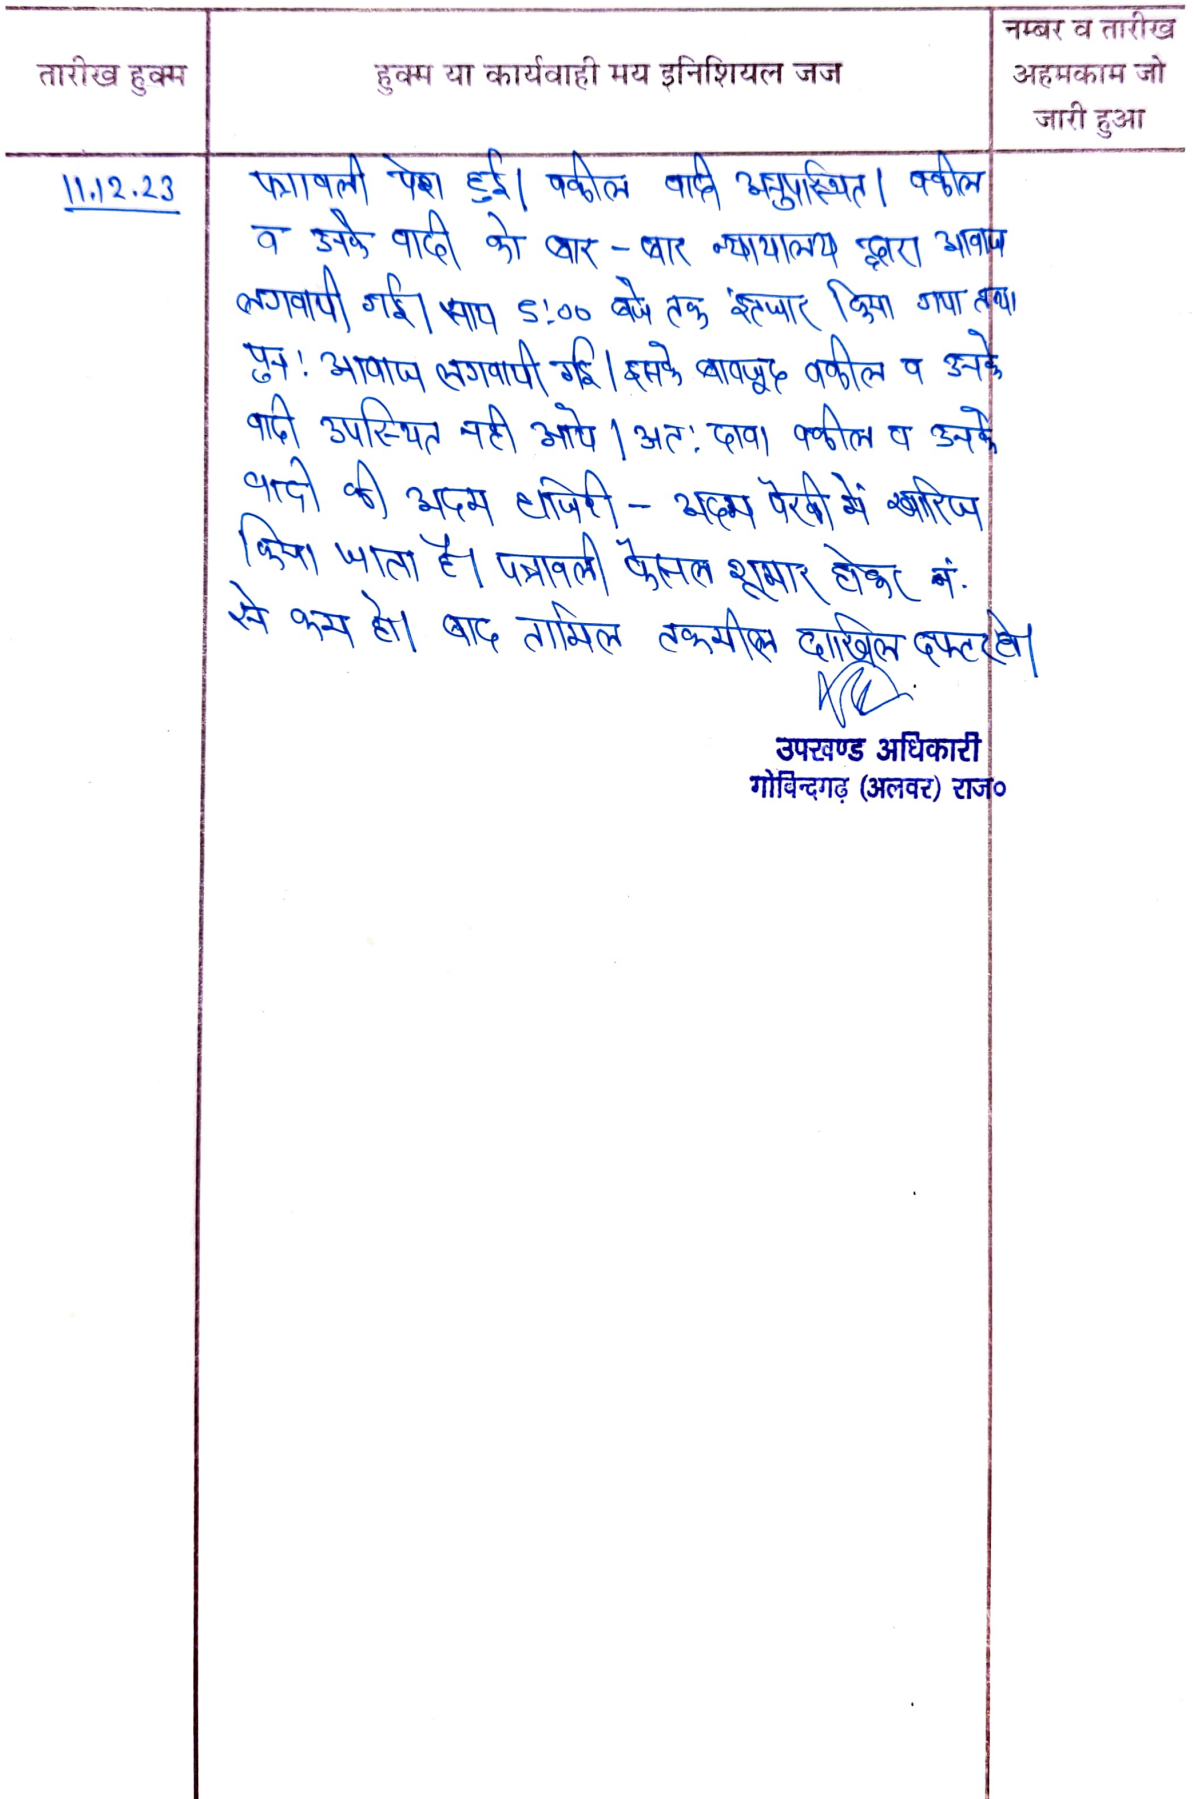 तारीख हुक्म
हुक्म या कार्यवाही मय इनिशियल जज
नम्बर व तारीख
अहमकाम जो
जारी हुआ
11.12.23
पत्रावली पेश हुई। वकील वादी अनुपस्थित। वकील
व उनके वादी को बार - बार न्यायालय द्वारा आवाज
लगवायी गई। साय 5:00 बजे तक इंतजार किया गया तथा
पुन: आवाज लगवायी गई। इसके बावजूद वकील व उनके
वादी उपस्थित नही आये। अत: दावा वकील व उनके
वादी की अदम हाजिरी - अदम पैरवी में खारिज
किया जाता है। पत्रावली फैसल शूमार होकर नं.
से कम हो। बाद तामिल तकमील दाखिल दफ्टर हो।
उपखण्ड अधिकारी
गोविन्दगढ़ (अलवर) राज०